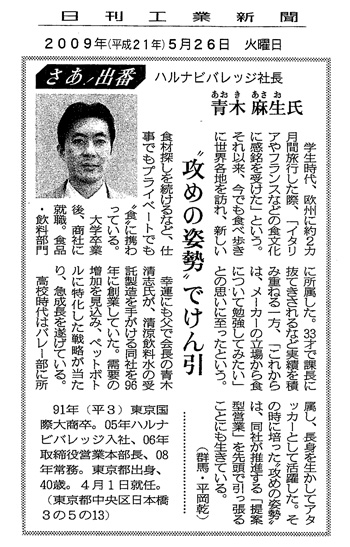 日刊工業新聞
2009年(平成21年)5月26日 火曜日
さあ／出番
ハルナビバレッジ社長
あおき あさお
青木 麻生氏
"攻めの姿勢"でけん引
学生時代、欧州に約2カ
月間旅行した際、「イタリ
アやフランスなどの食文化
に感銘を受けた」という。
それ以来、今でも食べ歩き
に世界各地を訪れ、新しい
食材探しを続けるなど、仕
事でもプライベートでも
"食"に携わ
っている。
大学卒業
後、商社に
就職。食品
・飲料部門
に所属した。33才で課長に
抜てきされるなど実績を積
み重ねる一方、「これから
は、メーカーの立場から食
について勉強してみたい」
との思いに至ったという。
幸運にも父で会長の青木
清志氏が、清涼飲料水の受
託製造を手がける同社を96
年に創業していた。需要の
増加を見込み、ペットボト
ルに特化した戦略が当た
り、急成長を遂げている。
高校時代はバレー部に所
属し、長身を生かしてアタ
ッカーとして活躍した。そ
の時に培った"攻めの姿勢"
は、同社が推進する「提案
型営業」を先頭で引っ張る
ことにも生きている。
(群馬・平岡乾)
91年(平3)東京国
際大商卒。05年ハルナ
ビバレッジ入社、06年
取締役営業本部長、08
年常務。東京都出身、
40歳。4月1日就任。
(東京都中央区日本橋
3の5の13)